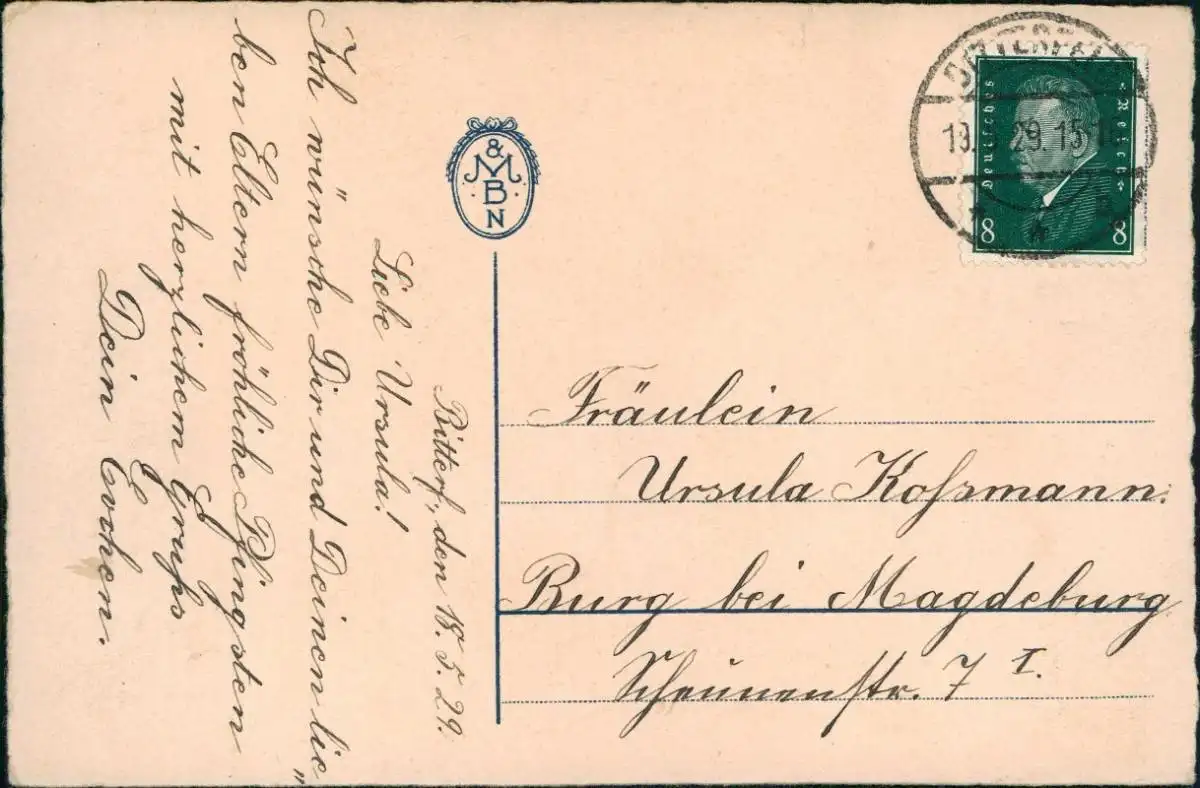 Bitterf., den 18. 5. 29.
Liebe Ursula!
Ich wünsche Dir und Deinen lie„
ben Eltern fröhliche Pfingsten
mit herzlichem Gruß
Dein Evchen.
&
M
B
N
BITTERFELD
29.15-16
Deutsches Reich
8 8
Fräulein
Ursula Koßmann.
Burg bei Magdeburg
Scheunenstr. 7 I.